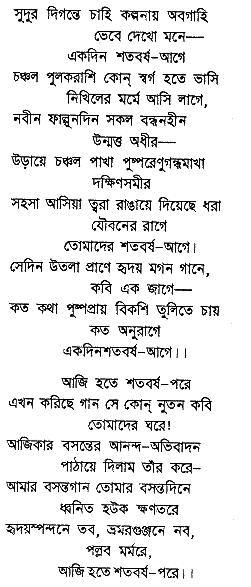 সুদূর দিগন্তে চাহি কল্পনায় অবগাহি
ভেবে দেখো মনে—
একদিন শতবর্ষ-আগে
চঞ্চল পুলকরাশি কোন্ স্বর্গ হতে ভাসি
নিখিলের মর্মে আসি লাগে,
নবীন ফাল্গুনদিন সকল বন্ধনহীন
উন্মত্ত অধীর—
উড়ায়ে চঞ্চল পাখা পুষ্পরেণুগন্ধমাখা
দক্ষিণসমীর
সহসা আসিয়া ত্বরা রাঙায়ে দিয়েছে ধরা
যৌবনের রাগে
তোমাদের শতবর্ষ-আগে।
সেদিন উতলা প্রাণে হৃদয় মগন গানে,
কবি এক জাগে—
কত কথা পুষ্পপ্রায় বিকশি তুলিতে চায়
কত অনুরাগে
একদিনশতবর্ষ-আগে।।
আজি হতে শতবর্ষ-পরে
এখন করিছে গান সে কোন্ নুতন কবি
তোমাদের ঘরে!
আজিকার বসন্তের আনন্দ-অভিবাদন
পাঠায়ে দিলাম তাঁর করে–
আমার বসন্তগান তোমার বসন্তদিনে
ধ্বনিত হউক ক্ষণতরে
হৃদয়স্পন্দনে তব, ভ্রমরগুঞ্জনে নব,
পল্লব মর্মরে,
আজি হতে শতবর্ষ-পরে।।